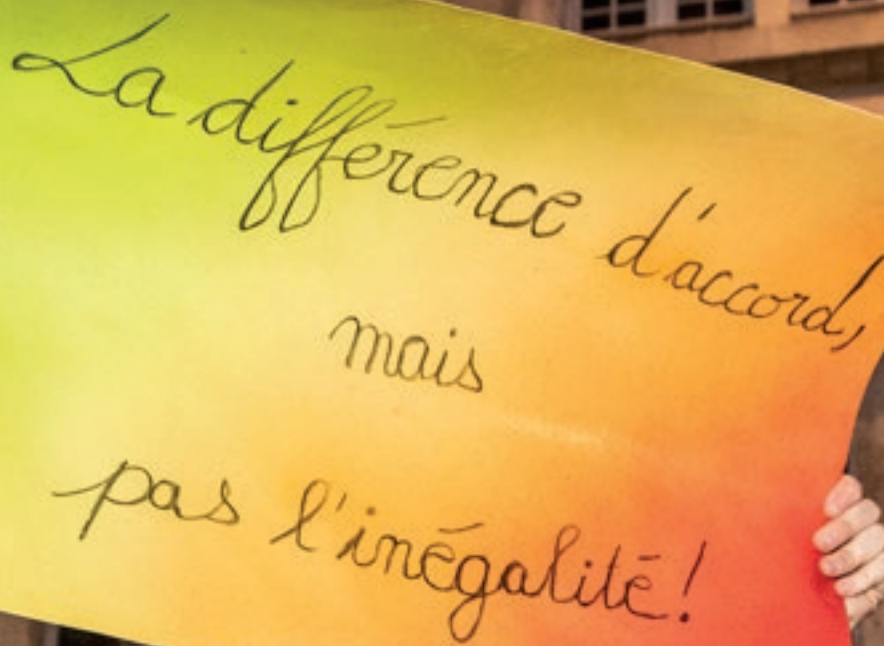 La différence d'accord,
mais
pas l'inégalité!